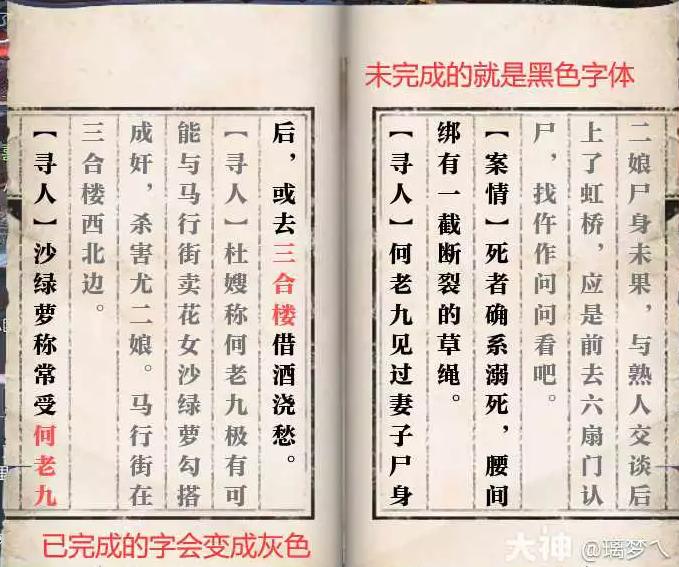 未完成的就是黑色字体
二娘尸身未果，与熟人交谈后
上了虹桥，应是前去六扇门认
尸，找仵作问问看吧。
【案情】死者确系溺死，腰间
绑有一截断裂的草绳。
【寻人】何老九见过妻子尸身
后，或去三合楼借酒浇愁。
【寻人】杜嫂称何老九极有可
能与马行街卖花女沙绿萝勾搭
成奸，杀害尤二娘。马行街在
三合楼西北边。
【寻人】沙绿萝称常受何老九
已完成的字会变成灰色
大神 @璃梦乀